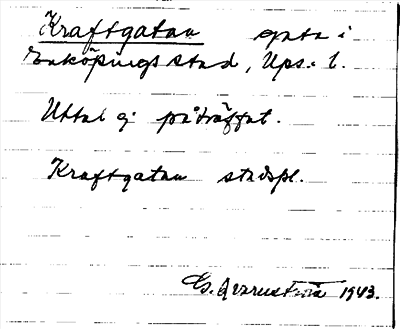 Kraftgatan gata i
Enköpings stad, Ups. l.
Uttal ej påträffat.
Kraftgatan stadspl.
G. Qvarnström 1943.